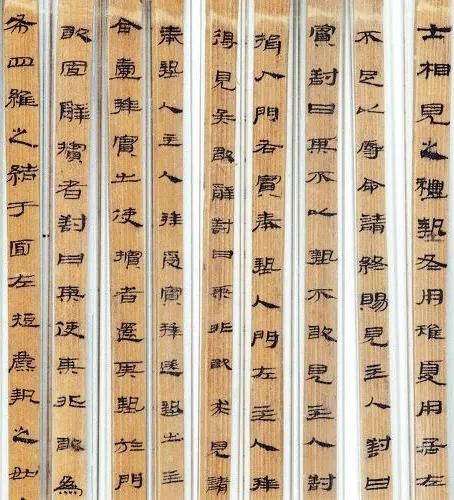 士相見之禮摯冬用雉夏用居左
不足以辱命請終賜見主人對曰
賓對曰某不以摯不敢見主人對
揖入門右賓奉摯入門左主人拜
得見矣敢辭對曰某非敢求見請
奉摯入主人拜受賓拜送摯出主
合壹拜賓出使擯者還某摯於門
敢固辭擯者對曰某使某非敢為
布四維之結于面左麋執之如